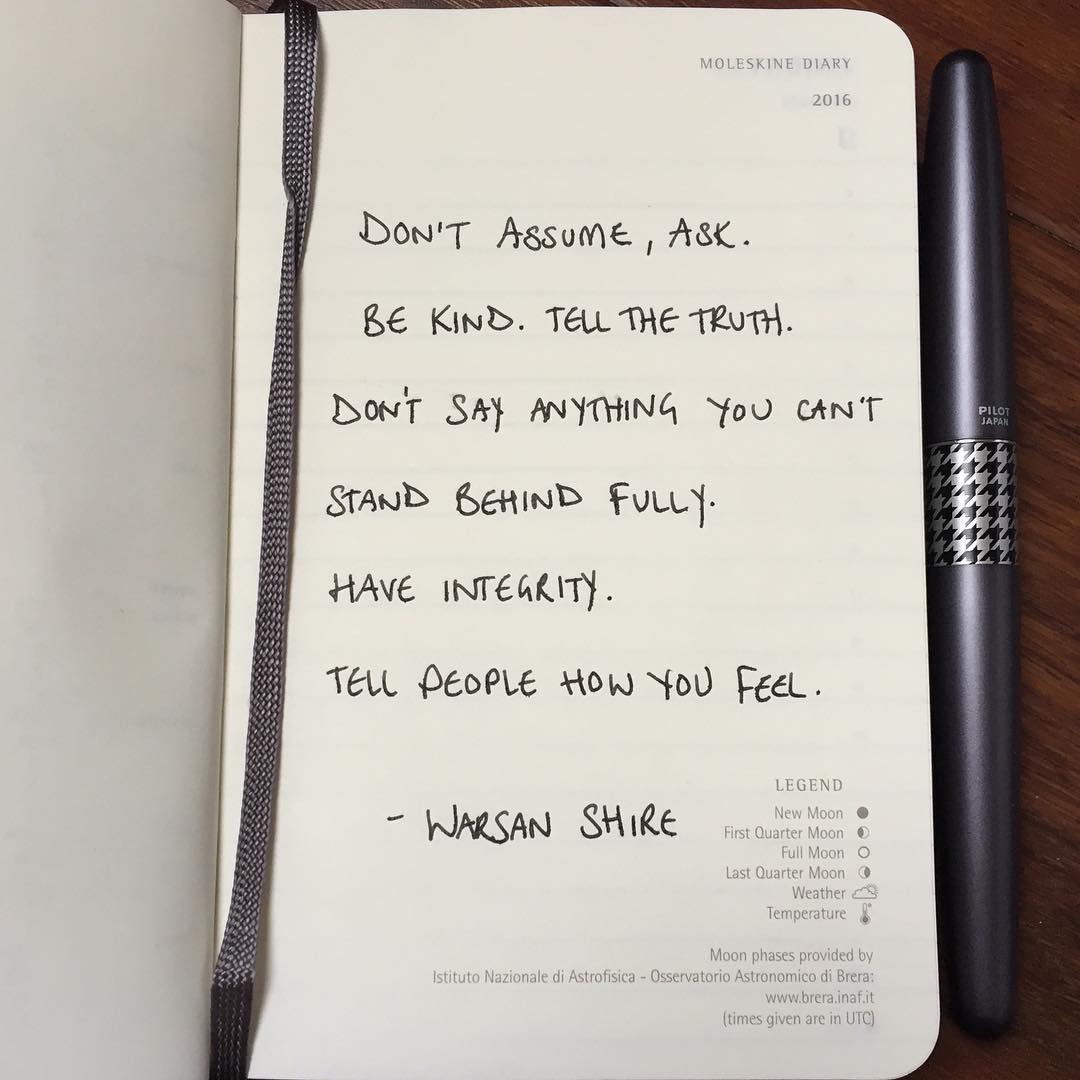 MOLESKINE DIARY
2016
DON'T ASSUME, ASK.
BE KIND. TELL THE TRUTH.
DON'T SAY ANYTHING YOU CAN'T
STAND BEHIND FULLY.
HAVE INTEGRITY.
TELL PEOPLE HOW YOU FEEL.
- WARSAN SHIRE
LEGEND
New Moon
First Quarter Moon
Full Moon
Last Quarter Moon
Weather
Temperature
Moon phases provided by
Istituto Nazionale di Astrofisica - Osservatorio Astronomico di Brera:
www.brera.inaf.it
(times given are in UTC)
PILOT
JAPAN